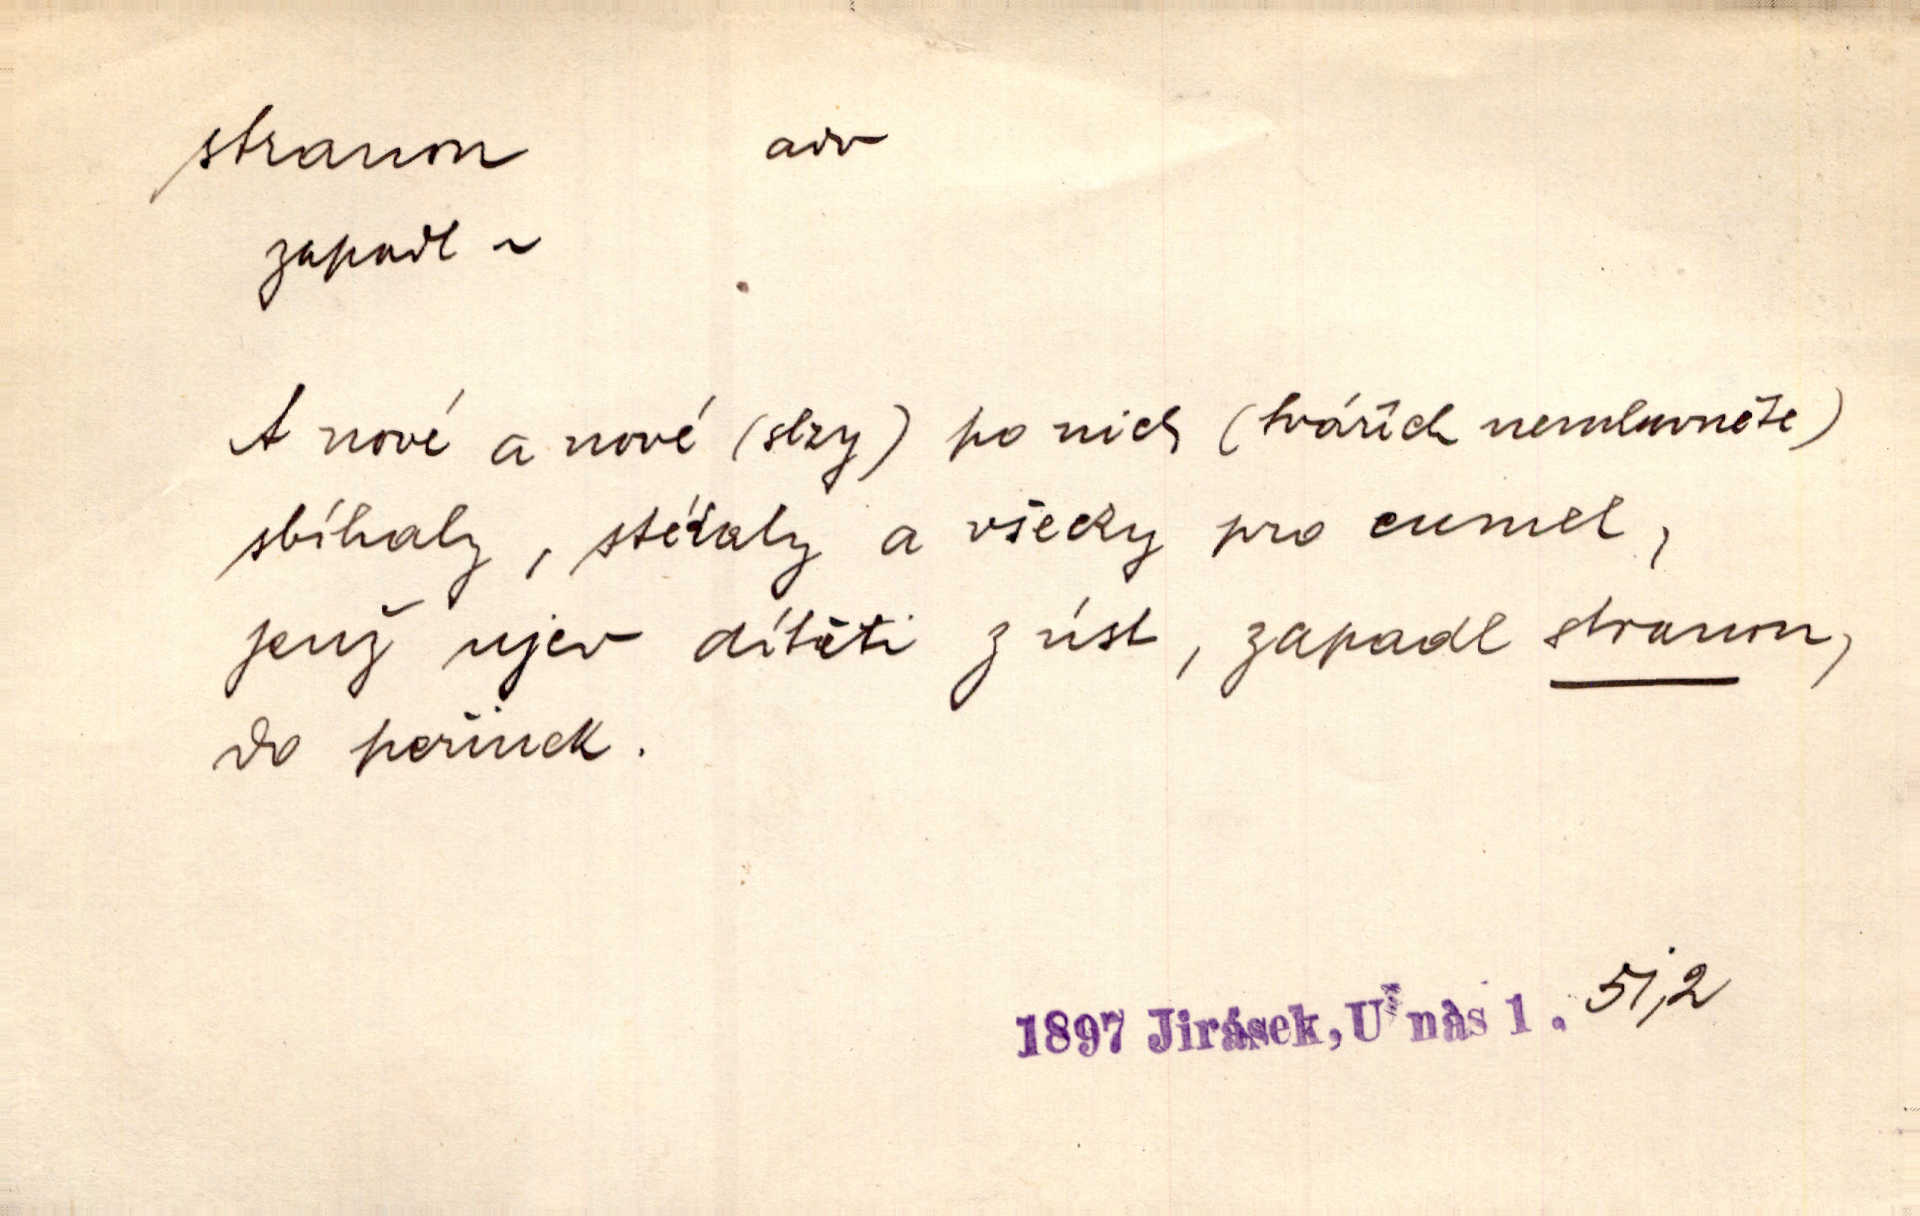 stranou adv
zapadl ~
A nové a nové (slzy) po nich (tvářích nemluvněte)
sbíhaly, stékaly a všecky pro cumel,
jenž ujev dítěti z úst, zapadl stranou,
do peřinek.
1897 Jirásek, U nás 1. 51,2